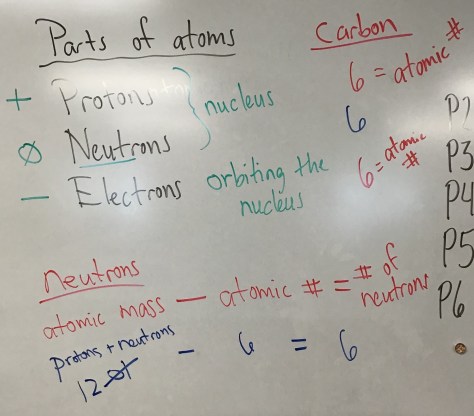 Parts of atoms
+ Protons
Ø Neutrons
nucleus
− Electrons orbiting the
nucleus
Carbon
6 = atomic #
6
6 = atomic
#
P2
P3
P4
P5
P6
Neutrons
atomic mass − atomic # = # of
neutrons
protons + neutrons
12.01 − 6 = 6